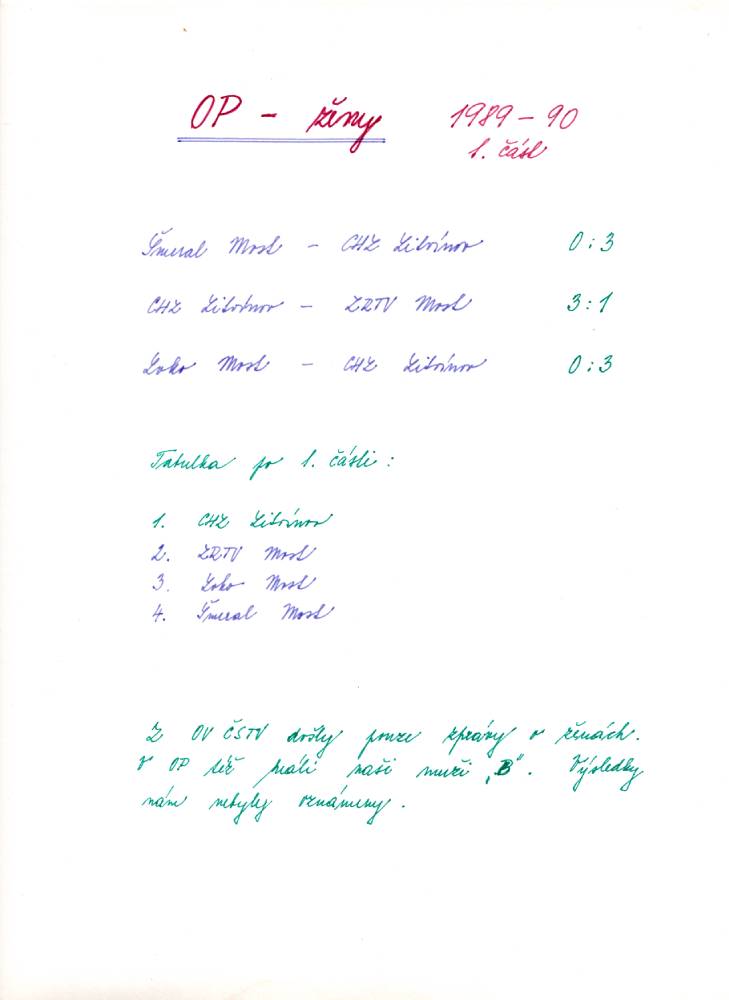 OP - ženy 1989 - 90
1. část
Šmeral Most - CHZ Litvínov 0 : 3
CHZ Litvínov - ZRTV Most 3 : 1
Loko Most - CHZ Litvínov 0 : 3
Tabulka po 1. části :
1. CHZ Litvínov
2. ZRTV Most
3. Loko Most
4. Šmeral Most
Z OV ČSTV došly pouze zprávy o ženách.
V OP též hráli naši muži „B“. Výsledky
nám nebyly oznámeny.